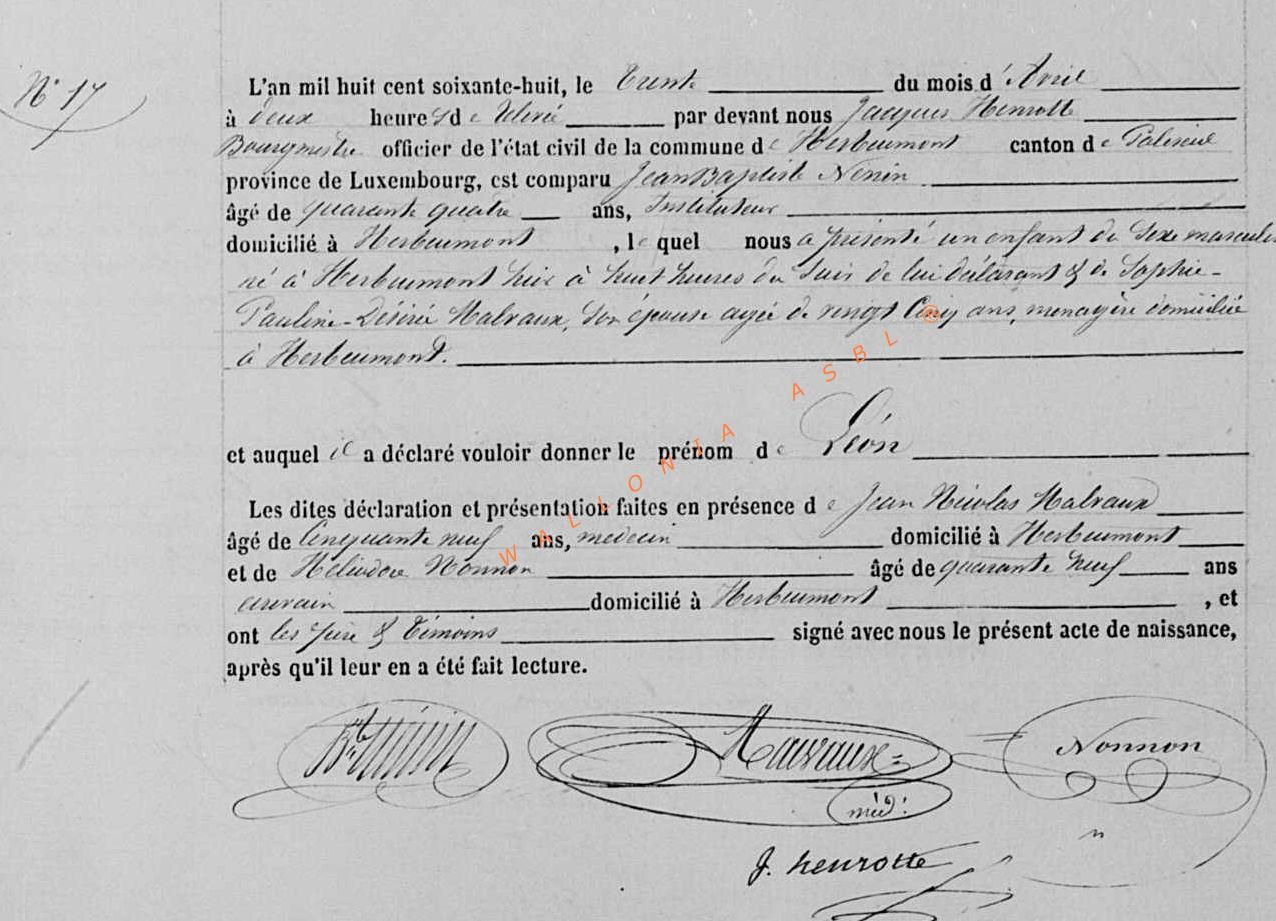 N° 17
L'an mil huit cent soixante-huit, le Trente du mois d'Avril
à deux heures de rélevé par devant nous Jacques Henrotte
Bourgmestre officier de l'état civil de la commune de Herbeumont canton de Paliseul
province de Luxembourg, est comparu Jean Baptiste Nénin
âgé de quarante quatre ans, Instituteur
domicilié à Herbeumont, lequel nous a présenté un enfant du Sexe masculin
né à Herbeumont hier à huit heures du Soir de lui déclarant & de Sophie-
Pauline-Désirée Malvaux, Son épouse agée de vingt Cinq ans, menagère domiciliée
à Herbeumont.
et auquel il a déclaré vouloir donner le prénom de Léon
Les dites déclaration et présentation faites en présence de Jean Nicolas Malvaux
âgé de Cinquante neuf ans, medecin domicilié à Herbeumont
et de Héliodore Nonnon âgé de quarante neuf ans
domicilié à Herbeumont, et
ont les père & Témoins signé avec nous le présent acte de naissance,
après qu'il leur en a été fait lecture.
Bte Ninin Malvaux Nonnon
méd:
J. henrotte
WALLONIA ASBL ®